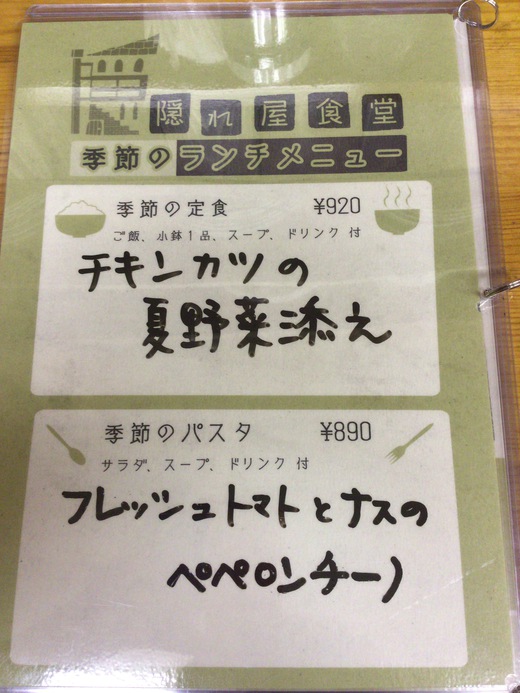 隠れ屋食堂
季節のランチメニュー
季節の定食 ¥920
ご飯、小鉢1品、スープ、ドリンク 付
チキンカツの
夏野菜添え
季節のパスタ ¥890
サラダ、スープ、ドリンク 付
フレッシュトマトとナスの
ペペロンチーノ